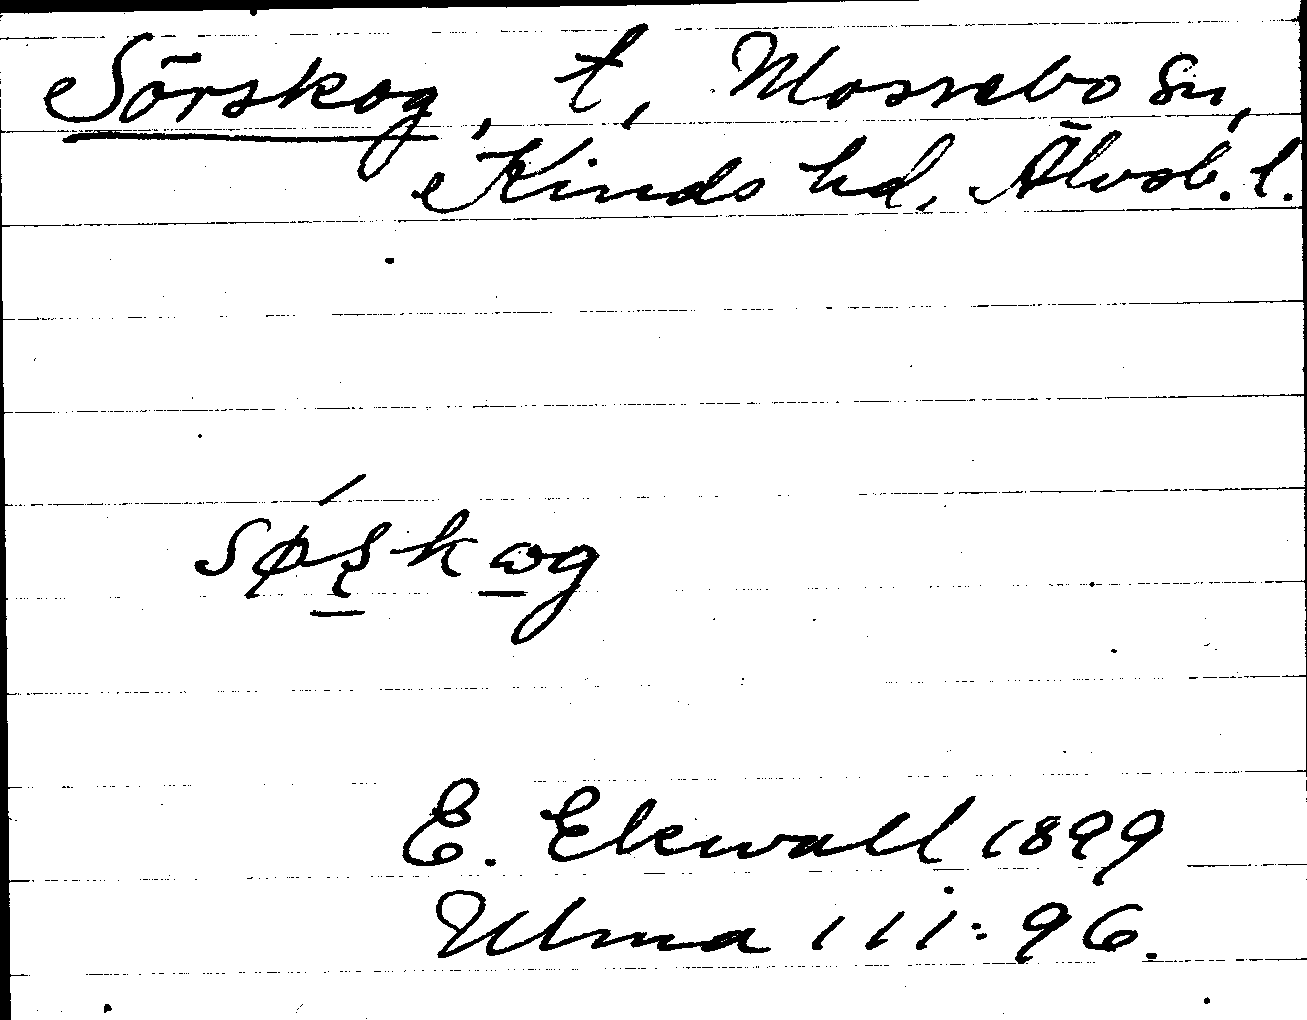 Sörskog, t, Mossebo sn,
Kinds hd, Älvsb. l.
E. Ekwall 1899
Ulma 111:96.